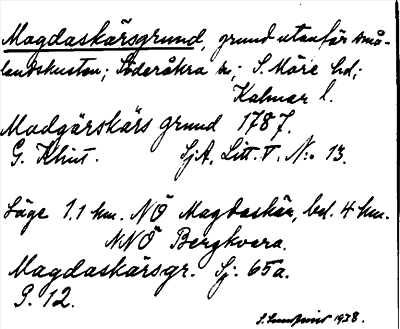 Magdaskärsgrund, grund utanför små-
landskusten; Söderåkra sn; S. Möre hd;
Kalmar l.
Madgärskärs grund 1787.
G. Klint. SjA. Litt. V. No: 13.
Läge 1.1 km. NÖ Magdaskär, bel. 4 km.
NNÖ Bergkvara.
Magdaskärsgr. Sj. 65a.
S. 12.
1938.